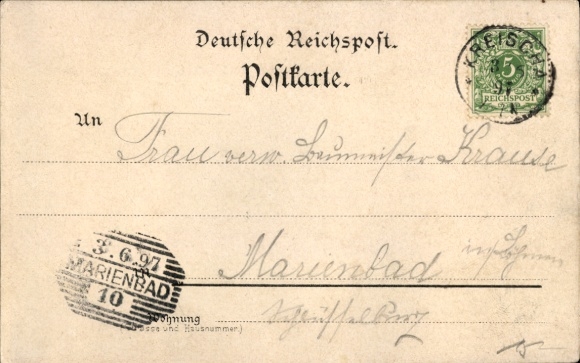 Deutsche Reichspost.
Postkarte.
KREISCHA
3
97
5
REICHSPOST
An
Frau verw. Baumeister Krause
3.6.97
MARIENBAD
10
in
Marienbad
in Böhmen
Wohnung
(Strasse und Hausnummer.)
Schüsselburg